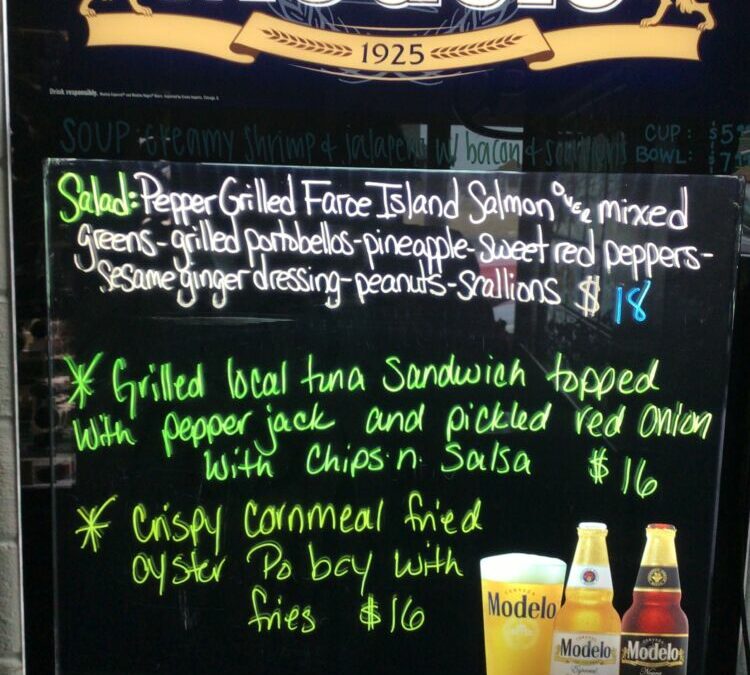 Modelo
1925
Drink responsibly.
SOUP: creamy shrimp & jalapeño w/ bacon & CUP: $5
BOWL: $7
Salad: Pepper Grilled Faroe Island Salmon over mixed
greens-grilled portobellos-pineapple-sweet red peppers-
sesame ginger dressing-peanuts-scallions $ 18
* Grilled local tuna sandwich topped
with pepper jack and pickled red onion
with chips n salsa $16
* Crispy cornmeal fried
oyster Po boy with
fries $16
Modelo
Modelo
Especial
Modelo